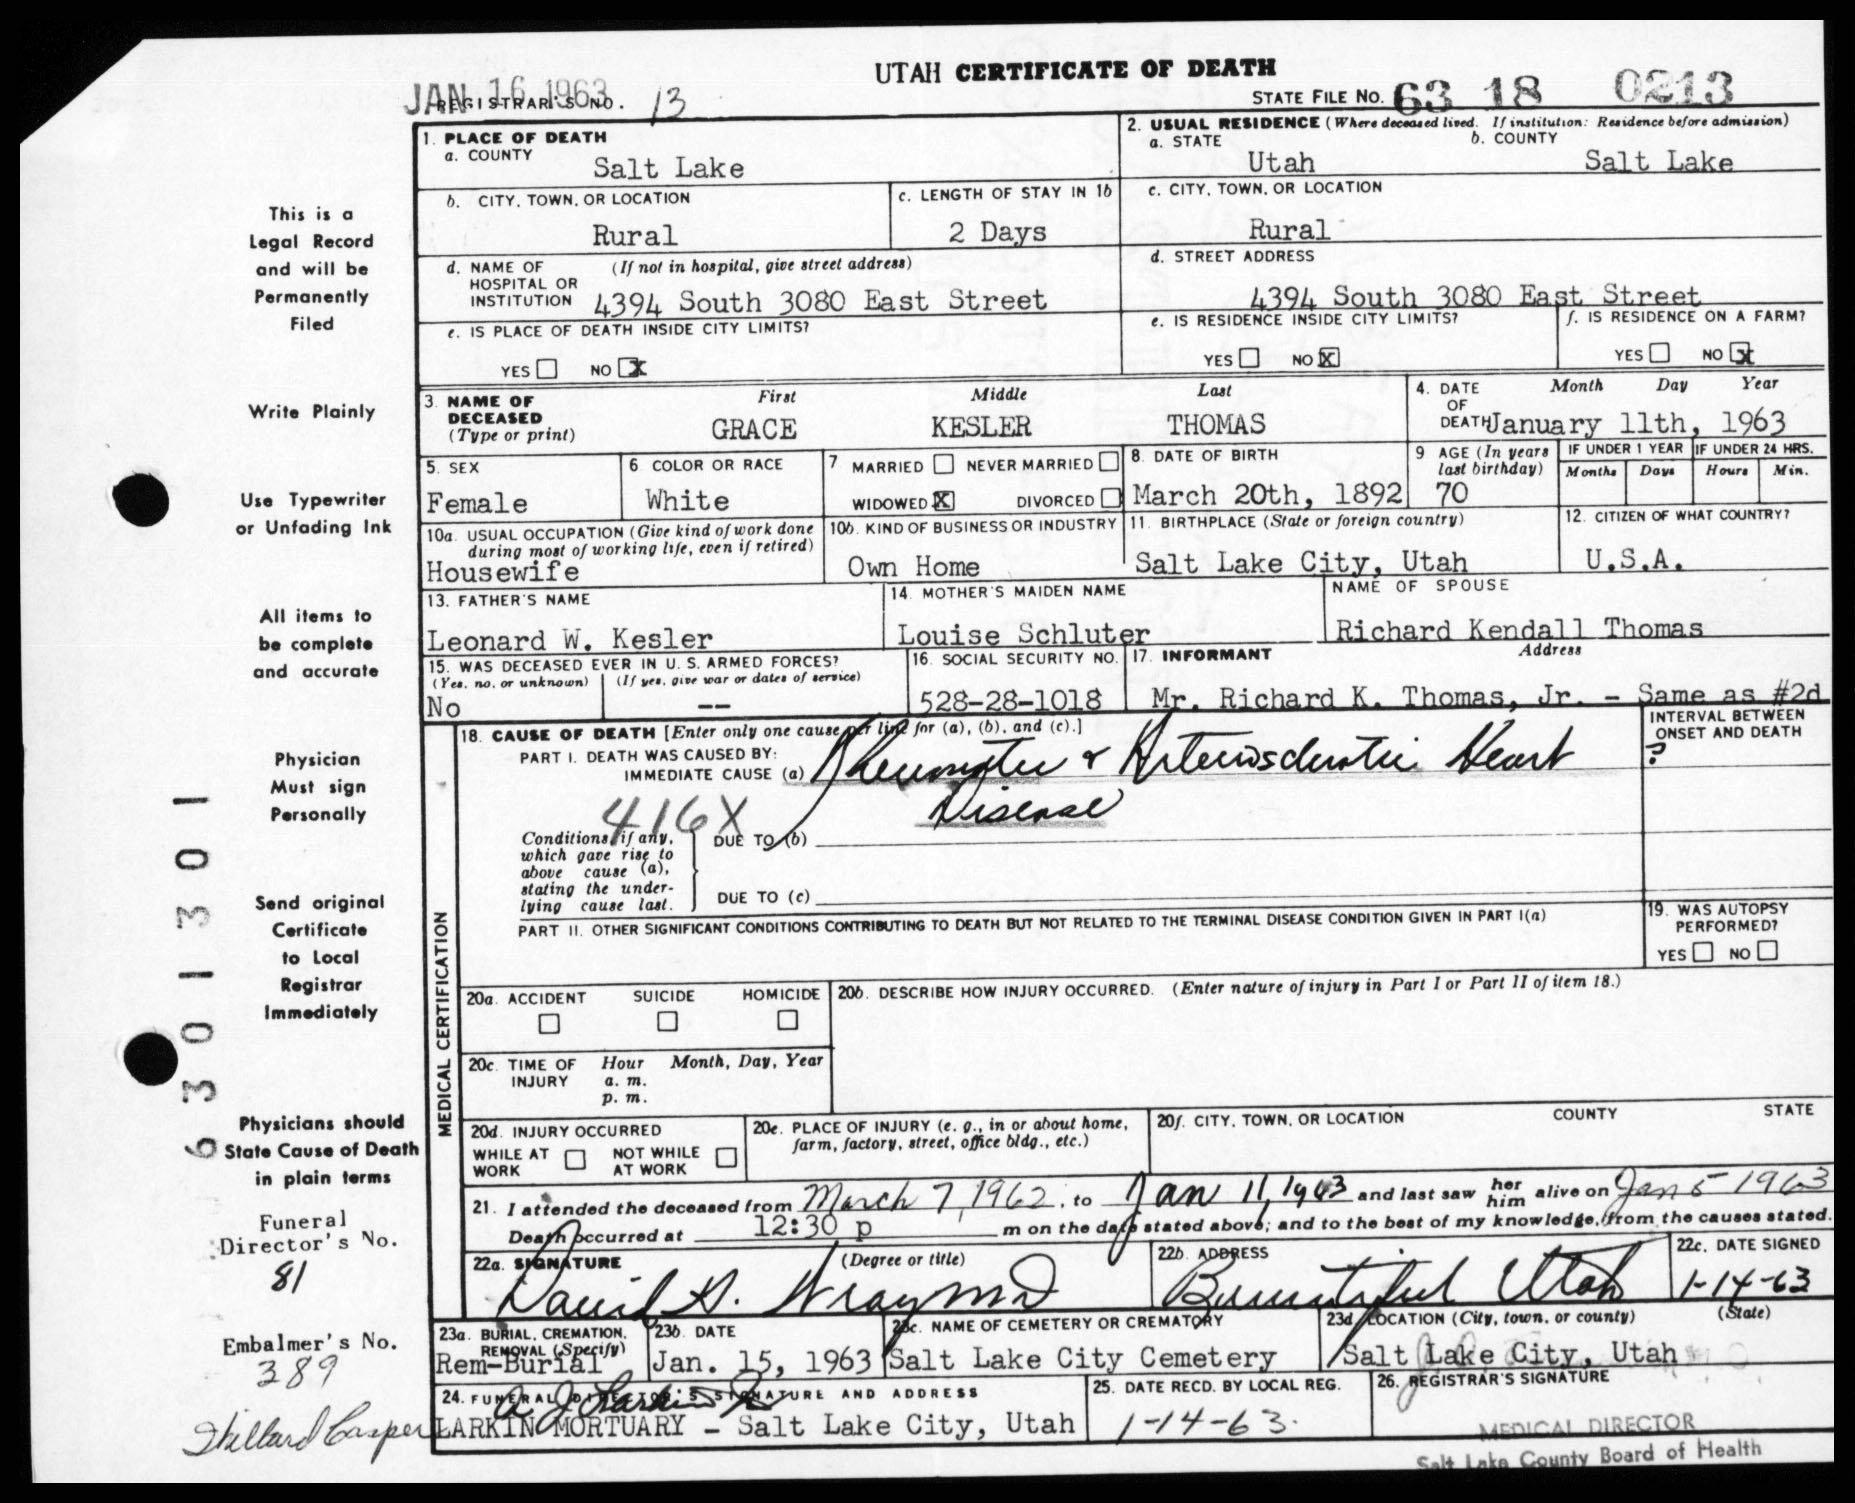 UTAH CERTIFICATE OF DEATH
JAN 16 1963
REGISTRAR'S NO. 13
STATE FILE NO. 63 18 0213
1. PLACE OF DEATH
a. COUNTY
Salt Lake
2. USUAL RESIDENCE (Where deceased lived. If institution: Residence before admission)
a. STATE b. COUNTY
Utah Salt Lake
b. CITY, TOWN, OR LOCATION
Rural
c. LENGTH OF STAY IN 1b
2 Days
c. CITY, TOWN, OR LOCATION
Rural
d. NAME OF HOSPITAL OR INSTITUTION (If not in hospital, give street address)
4394 South 3080 East Street
d. STREET ADDRESS
4394 South 3080 East Street
e. IS PLACE OF DEATH INSIDE CITY LIMITS?
YES NO X
e. IS RESIDENCE INSIDE CITY LIMITS?
YES NO X
f. IS RESIDENCE ON A FARM?
YES NO X
3. NAME OF DECEASED (Type or print)
First Middle Last
GRACE KESLER THOMAS
4. DATE OF DEATH Month Day Year
January 11th, 1963
5. SEX
Female
6 COLOR OR RACE
White
7 MARRIED NEVER MARRIED
WIDOWED X DIVORCED
8. DATE OF BIRTH
March 20th, 1892
9 AGE (In years last birthday)
70
IF UNDER 1 YEAR
Months Days
IF UNDER 24 HRS.
Hours Min.
10a. USUAL OCCUPATION (Give kind of work done during most of working life, even if retired)
Housewife
10b. KIND OF BUSINESS OR INDUSTRY
Own Home
11. BIRTHPLACE (State or foreign country)
Salt Lake City, Utah
12. CITIZEN OF WHAT COUNTRY?
U.S.A.
13. FATHER'S NAME
Leonard W. Kesler
14. MOTHER'S MAIDEN NAME
Louise Schluter
NAME OF SPOUSE
Richard Kendall Thomas
15. WAS DECEASED EVER IN U. S. ARMED FORCES?
(Yes, no, or unknown) (If yes, give war or dates of service)
No --
16. SOCIAL SECURITY NO.
528-28-1018
17. INFORMANT Address
Mr. Richard K. Thomas, Jr. - Same as #2d
18. CAUSE OF DEATH [Enter only one cause per line for (a), (b), and (c).]
PART I. DEATH WAS CAUSED BY:
IMMEDIATE CAUSE (a) Rheumatic & Arteriosclerotic Heart
Disease
416X
INTERVAL BETWEEN ONSET AND DEATH
?
Conditions, if any, which gave rise to above cause (a), stating the underlying cause last.
DUE TO (b)
DUE TO (c)
PART II. OTHER SIGNIFICANT CONDITIONS CONTRIBUTING TO DEATH BUT NOT RELATED TO THE TERMINAL DISEASE CONDITION GIVEN IN PART I(a)
19. WAS AUTOPSY PERFORMED?
YES NO
MEDICAL CERTIFICATION
20a. ACCIDENT SUICIDE HOMICIDE
20b. DESCRIBE HOW INJURY OCCURRED. (Enter nature of injury in Part I or Part II of item 18.)
20c. TIME OF INJURY Hour Month, Day, Year
a. m.
p. m.
20d. INJURY OCCURRED
WHILE AT WORK NOT WHILE AT WORK
20e. PLACE OF INJURY (e. g., in or about home, farm, factory, street, office bldg., etc.)
20f. CITY, TOWN, OR LOCATION COUNTY STATE
21. I attended the deceased from March 7, 1962, to Jan 11, 1963 and last saw her him alive on Jan 5 1963
Death occurred at 12:30 p m on the date stated above; and to the best of my knowledge, from the causes stated.
22a. SIGNATURE (Degree or title)
David G. Wray MD
22b. ADDRESS
Bountiful Utah
22c. DATE SIGNED
1-14-63
23a. BURIAL, CREMATION, REMOVAL (Specify)
Rem-Burial
23b. DATE
Jan. 15, 1963
23c. NAME OF CEMETERY OR CREMATORY
Salt Lake City Cemetery
23d. LOCATION (City, town, or county) (State)
Salt Lake City, Utah
24. FUNERAL DIRECTOR'S SIGNATURE AND ADDRESS
LARKIN MORTUARY - Salt Lake City, Utah
25. DATE RECD. BY LOCAL REG.
1-14-63.
26. REGISTRAR'S SIGNATURE
MEDICAL DIRECTOR
Salt Lake County Board of Health
This is a
Legal Record
and will be
Permanently
Filed
Write Plainly
Use Typewriter
or Unfading Ink
All items to
be complete
and accurate
Physician
Must sign
Personally
Send original
Certificate
to Local
Registrar
Immediately
Physicians should
State Cause of Death
in plain terms
6301301
Funeral
Director's No.
81
Embalmer's No.
389